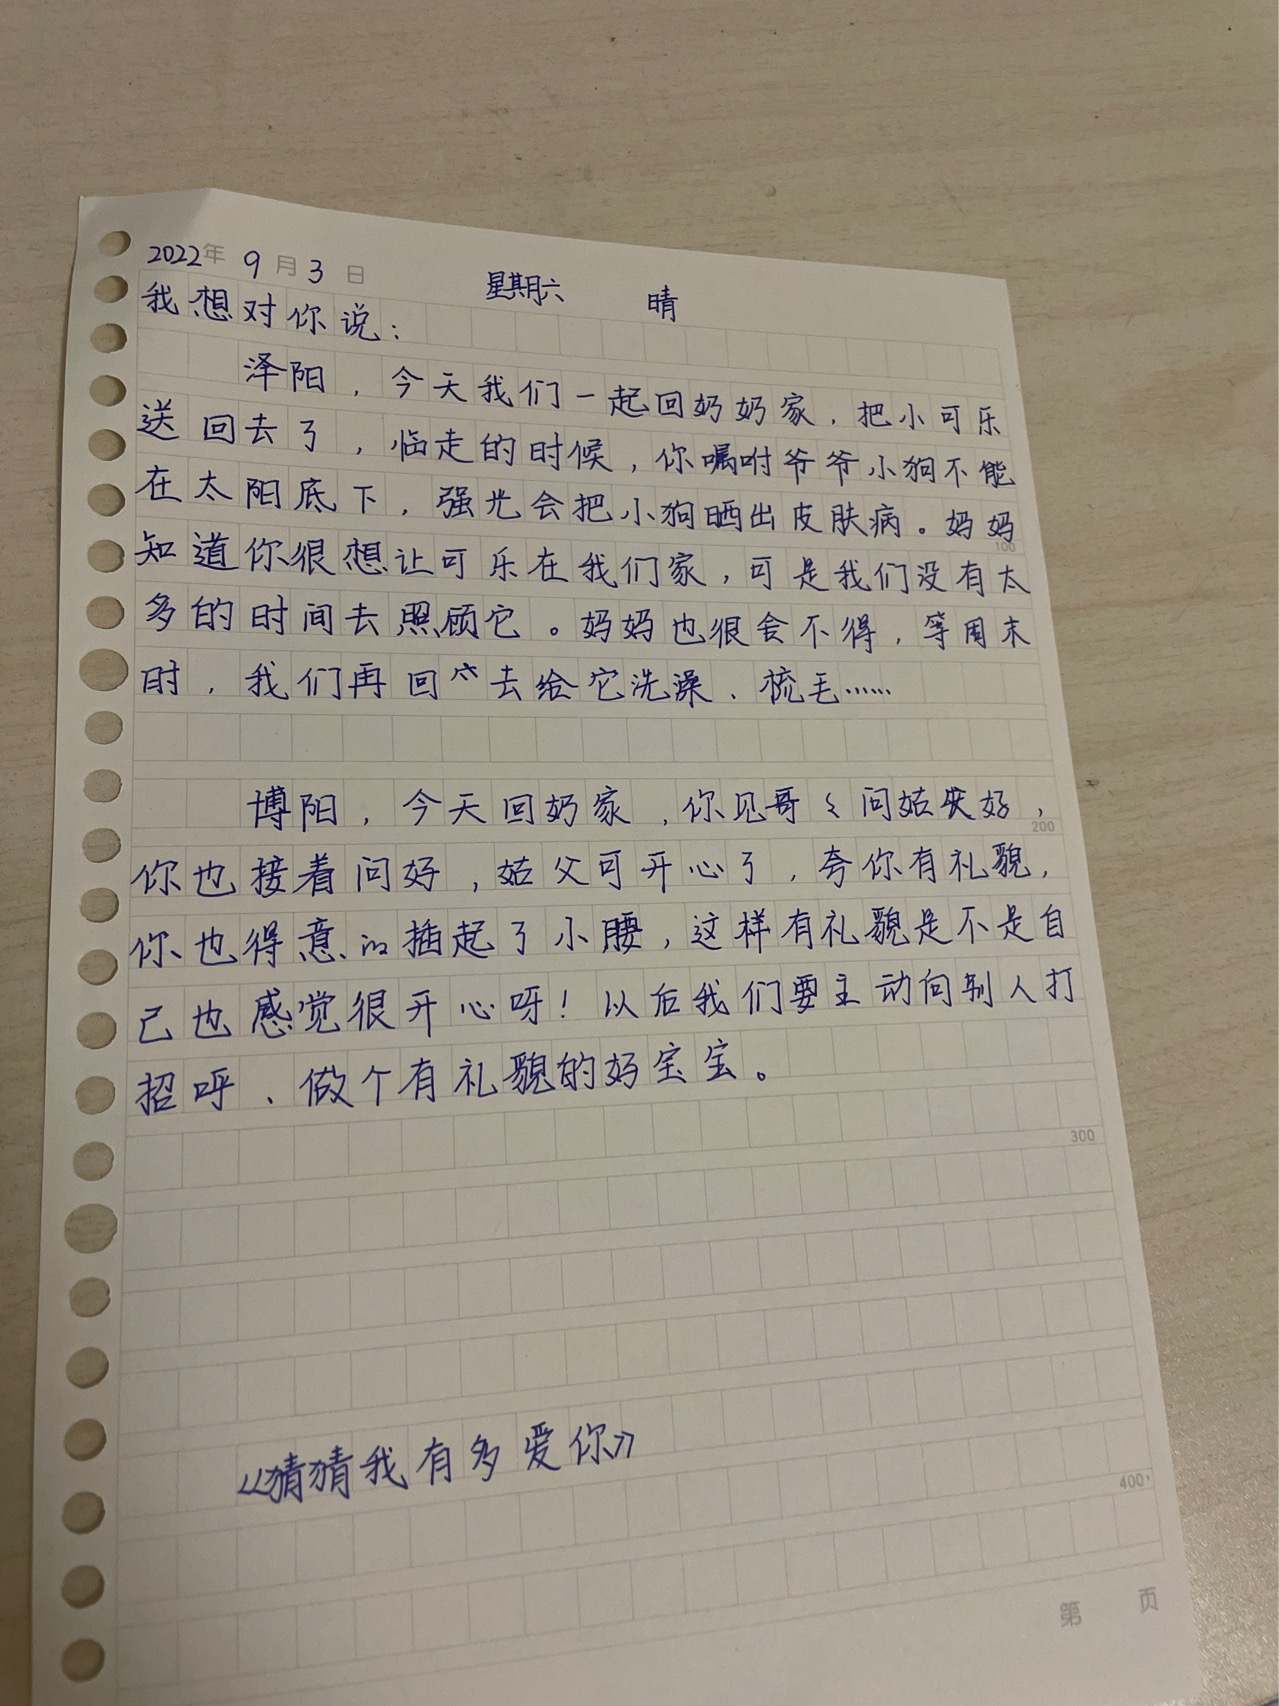 2022年 9月 3日 星期六 晴
我想对你说：
泽阳，今天我们一起回奶奶家，把小可乐
送回去了，临走的时候，你嘱咐爷爷小狗不能
在太阳底下，强光会把小狗晒出皮肤病。妈妈
100
知道你很想让可乐在我们家，可是我们没有太
多的时间去照顾它。妈妈也很舍不得，等周末
时，我们再回去给它洗澡、梳毛……
博阳，今天回奶家，你见哥〻问姑父好，
200
你也接着问好，姑父可开心了，夸你有礼貌，
你也得意的插起了小腰，这样有礼貌是不是自
己也感觉很开心呀！以后我们要主动向别人打
招呼、做个有礼貌的好宝宝。
300
《猜猜我有多爱你》
400
第 页